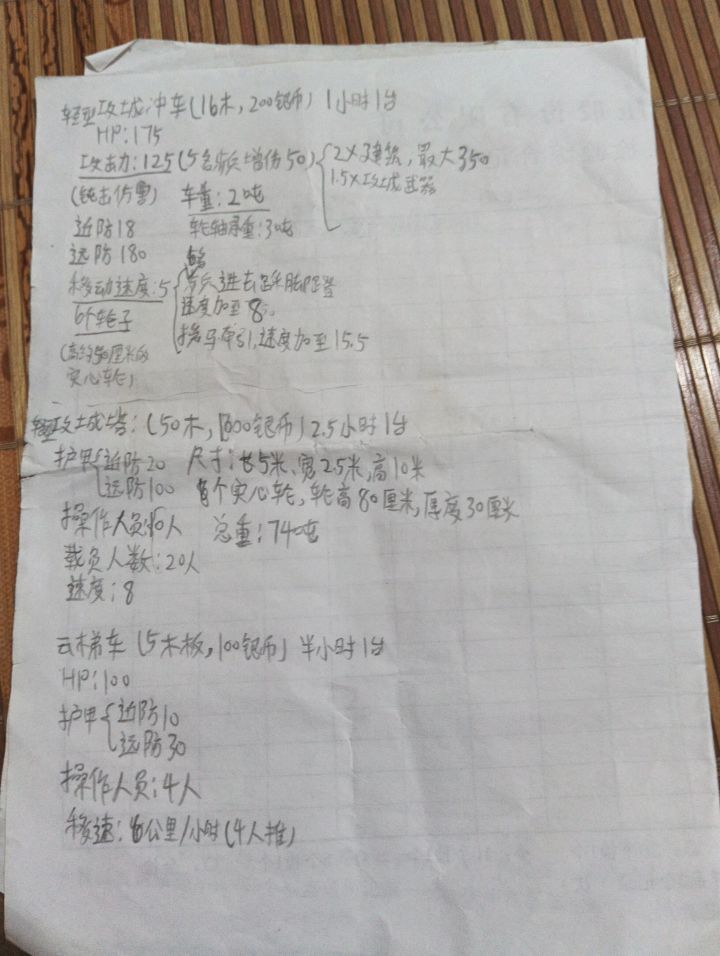 轻型攻城冲车(16木,200银币) 1小时1台
HP:175
攻击力:125(5名骑兵增伤50){2×建筑,最大350
1.5×攻城武器
(钝击伤害) 车重:2吨
近防18 轮轴承重:3吨
远防180
移动速度:5{步兵进去踩脚踏
速度加至8
6个轮子
挽马牵引,速度加至15.5
(高约50厘米的
实心轮)
轻型攻城塔:(50木,1600银币)2.5小时1台
护甲{近防20 尺寸:长5米、宽2.5米,高10米
远防100 6个实心轮,轮高80厘米,厚度30厘米
操作人员:10人 总重:740吨
载员人数:20人
速度:8
云梯车(5木板,100银币) 半小时1台
HP:100
护甲{近防10
远防30
操作人员:4人
移速:6公里/小时(4人推)